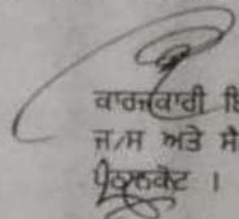 ਕਾਰਜਕਾਰੀ ਇ
ਜ/ਸ ਅਤੇ ਸੈ
ਪਠਾਨਕੋਟ ।